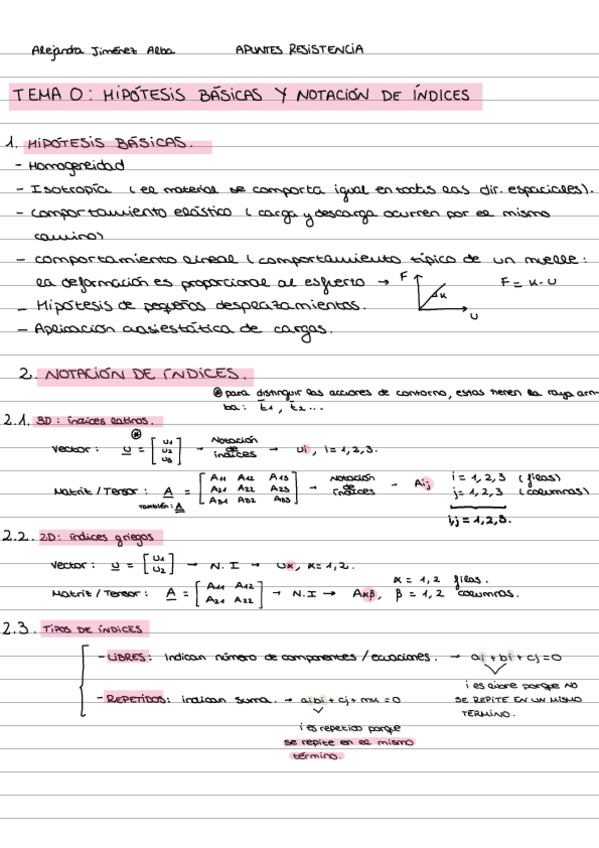 Alejandra Jiménez Alba APUNTES RESISTENCIA
TEMA 0: HIPÓTESIS BÁSICAS Y NOTACIÓN DE ÍNDICES
1. HIPÓTESIS BÁSICAS.
- Homogeneidad
- Isotropía (el material se comporta igual en todas las dir. espaciales).
- Comportamiento elástico (carga y descarga ocurren por el mismo
camino)
- Comportamiento lineal (comportamiento típico de un muelle:
la deformación es proporcional al esfuerzo → F K U F = K·U
- Hipótesis de pequeños desplazamientos.
- Aplicación cuasiestática de cargas.
2. NOTACIÓN DE ÍNDICES.
⊛ para distinguir las acciones de contorno, estas tienen la raya arri-
ba: t̄1, t̄2...
2.1. 3D: índices latinos.
Vector: u = [u1 u2 u3] → Notación de índices → ui, i=1,2,3.
Matriz/Tensor: A = [A11 A12 A13 A21 A22 A23 A31 A32 A33] → Notación de índices → Aij i=1,2,3 (filas) j=1,2,3 (columnas)
también: A
i,j = 1,2,3.
2.2. 2D: índices griegos
Vector: u = [u1 u2] → N.I → uα, α=1,2.
Matriz/Tensor: A = [A11 A12 A21 A22] → N.I → Aαβ, α=1,2 filas. β=1,2 columnas.
2.3. TIPOS DE ÍNDICES
- LIBRES: Indican número de componentes/ecuaciones. → ai + bi + cj = 0
i es libre porque NO
SE REPITE EN UN MISMO
TÉRMINO.
- REPETIDOS: indican suma. → aibi + cj + mk = 0
i es repetido porque
se repite en el mismo
término.